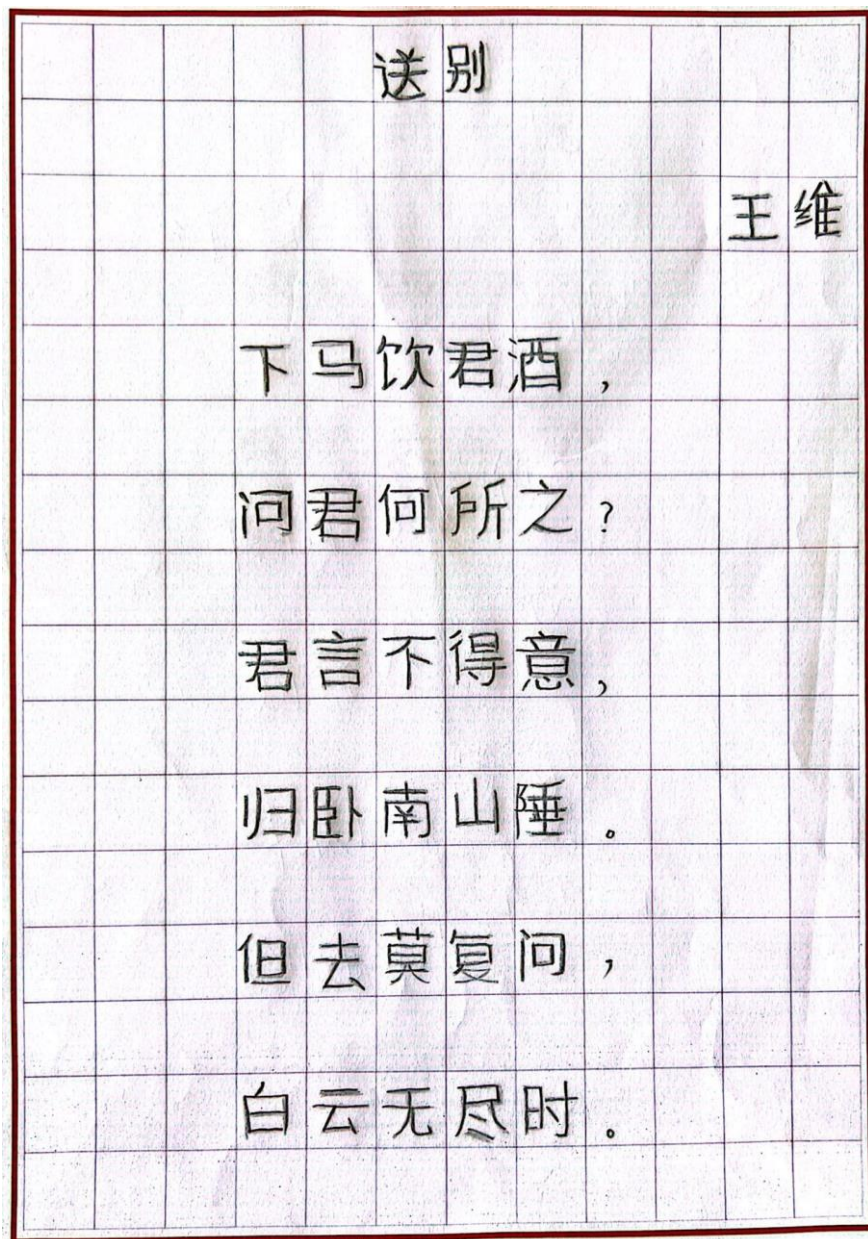 送别
王维
下马饮君酒，
问君何所之？
君言不得意，
归卧南山陲。
但去莫复问，
白云无尽时。